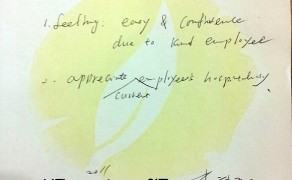 1. feeling : easy & confidence
due to kind employee
2. appreciate employee's hospitality
current
2011